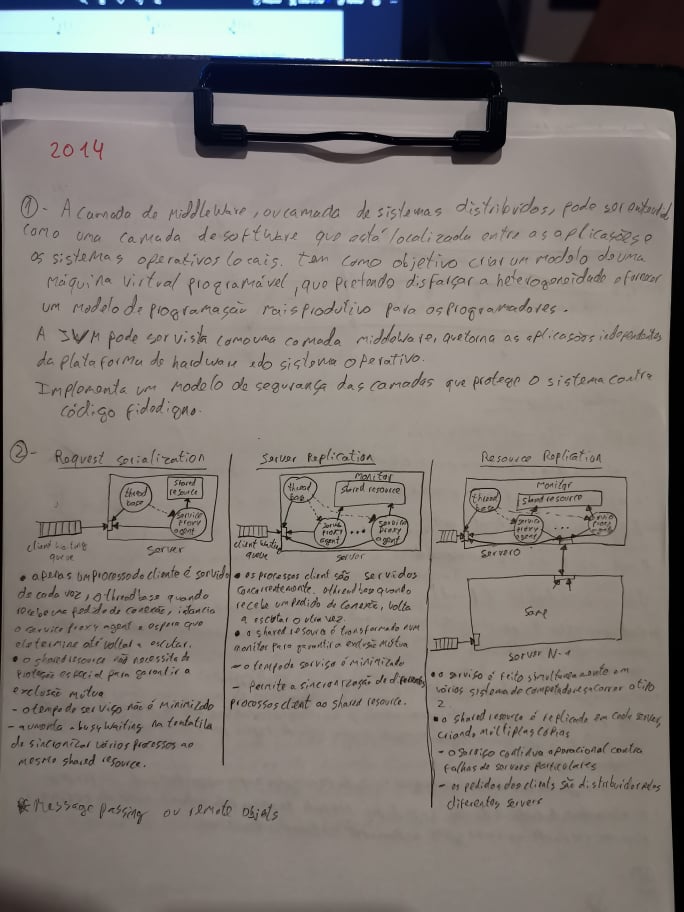 2014
①- A camada de middleware, ou camada de sistemas distribuídos, pode ser entendida
como uma camada de software que está localizada entre as aplicações e
os sistemas operativos locais. Tem como objetivo criar um modelo de uma
máquina virtual programável, que pretende disfarçar a heterogeneidade e fornecer
um modelo de programação mais produtivo para os programadores.
A JVM pode ser vista como uma camada middleware, que torna as aplicações independentes
da plataforma de hardware e do sistema operativo.
Implementa um modelo de segurança das camadas que protege o sistema contra
código fidedigno.
②- Request serialization
thread base
shared resource
service proxy agent
client waiting queue
server
• apenas um processo do cliente é servido
de cada vez, o thread base quando
recebe um pedido de conexão, instancia
o service proxy agent e espera que
ele termine até voltar a escutar.
• o shared resource não necessita de
proteção especial para garantir a
exclusão mútua
- o tempo de serviço não é minimizado
- aumenta o busy waiting na tentativa
de sincronizar vários processos ao
mesmo shared resource.
Server Replication
thread base
monitor
shared resource
service proxy agent
...
service proxy agent
client waiting queue
server
• os processos client são servidos
concorrentemente. o thread base quando
recebe um pedido de conexão, volta
a escutar outra vez.
• o shared resource é transformado num
monitor para garantir a exclusão mútua
- o tempo de serviço é minimizado
- permite a sincronização de diferentes
processos client ao shared resource.
Resource Replication
thread base
monitor
shared resource
service proxy agent
...
service proxy agent
server 0
Same
server N-1
• o serviço é feito simultaneamente em
vários sistema de computadores a correr o tipo
2.
• o shared resource é replicado em cada server,
criando múltiplas cópias
- o serviço continua operacional contra
falhas de servers particulares
- os pedidos dos clients são distribuídos pelos
diferentes servers
* Message passing ou remote objets